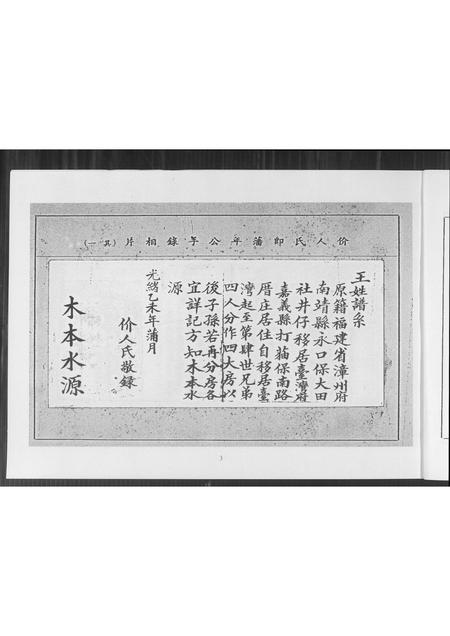 價人氏即藩年公手錄相片(其一)
王姓譜系
原籍福建省漳州府
南靖縣永口保大田
社井仔移居臺灣府
嘉義縣打貓保南路
厝庄居住自移居臺
灣起至第肆世兄弟
四人分作四大房以
後子孫若再分房各
宜詳記方知木本水
源
光緒乙未年蒲月
价人氏敬錄
木本水源
3